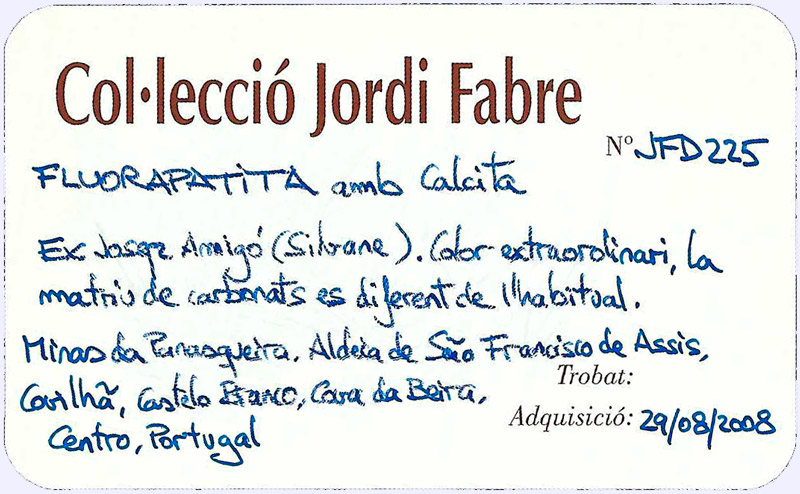 Col·lecció Jordi Fabre
Nº JFD225
FLUORAPATITA amb Calcita
Ex Josep Amigó (Silvane). Color extraordinari, la
matriu de carbonats es diferent de l'habitual.
Minas da Panasqueira, Aldeia de São Francisco de Assis,
Covilhã, Castelo Branco, Cova da Beira,
Centro, Portugal
Trobat:
Adquisició: 29/08/2008